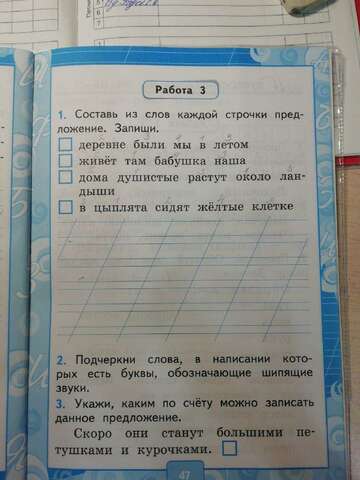 Работа 3
1. Составь из слов каждой строчки пред-
ложение. Запиши.
деревне были мы в летом
живёт там бабушка наша
дома душистые растут около лан-
дыши
в цыплята сидят жёлтые клетке
2. Подчеркни слова, в написании кото-
рых есть буквы, обозначающие шипящие
звуки.
3. Укажи, каким по счёту можно записать
данное предложение.
Скоро они станут большими пе-
тушками и курочками.
47